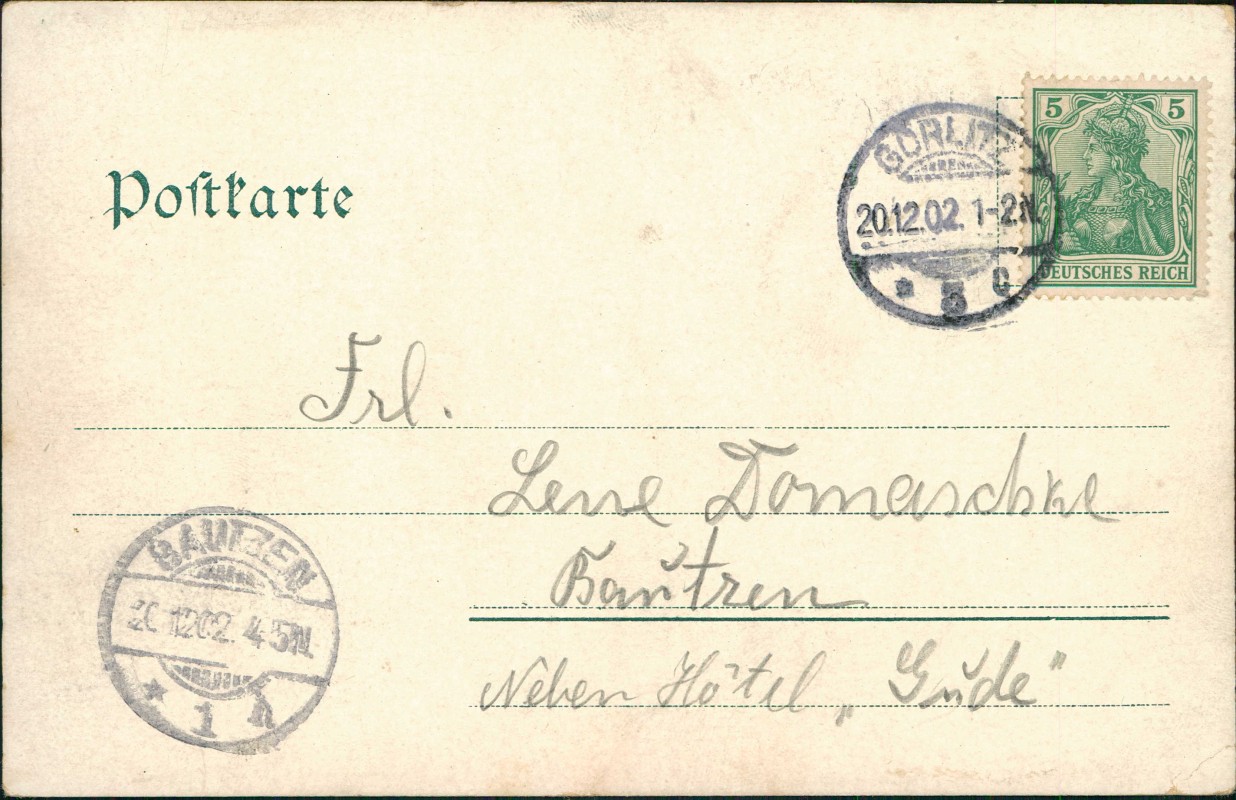 Postkarte
GÖRLITZ
20.12.02. 1-2N.
* 5 c
5 5
DEUTSCHES REICH
Frl.
Lene Domaschke
Bautzen
Neben Hôtel „Gude"
BAUTZEN
20.12.02. 4-5N.
* 1